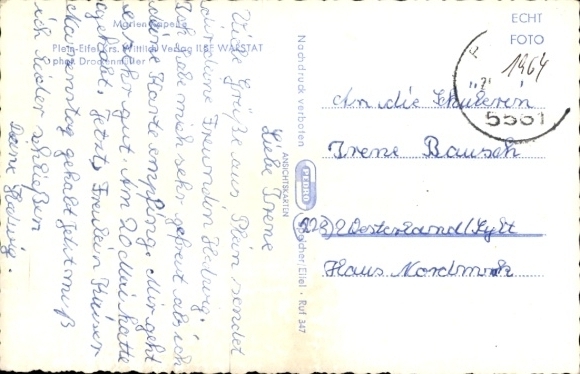 Marienkapelle
Plein-Eifel, Krs. Wittlich Verlag ILSE WALSTAT
ophot Drogenmüller
Liebe Irene
Viele Grüße aus Plein sendet
dir deine Freundin Hedwig.
Ich habe mich sehr gefreut als ich
deine Karte empfing. Mir geht
es sehr gut. Am 20 Mai hatte
Freulein
Namenstag gehabt. Jetzt muß
ich wieder schließen
Deine Hedwig.
Nachdruck verboten
ANSICHTSKARTEN
Speicher/Eifel · Ruf 347
ECHT
FOTO
1964
5561
An die Schülerin
Irene Bausch
Westerland/Sylt
Haus Nordmark